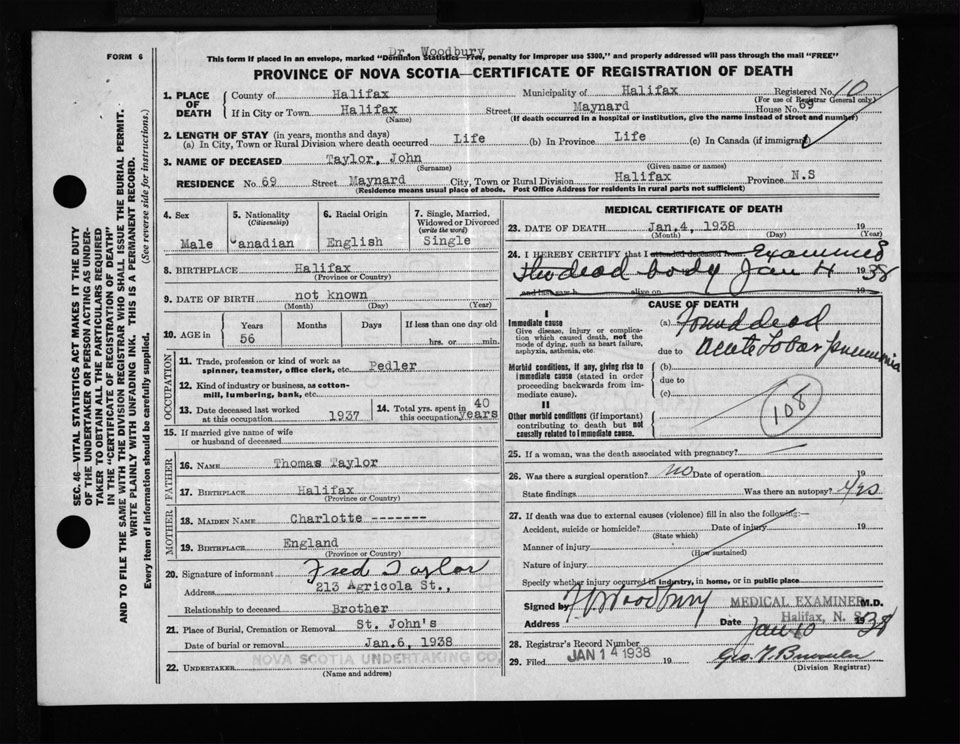 Dr. Woodbury
FORM 6
This form if placed in an envelope, marked "Dominion Statistics—Free, penalty for improper use $300," and properly addressed will pass through the mail "FREE"
PROVINCE OF NOVA SCOTIA—CERTIFICATE OF REGISTRATION OF DEATH
1. PLACE OF DEATH
County of Halifax Municipality of Halifax Registered No. 10
(For use of Registrar General only)
If in City or Town Halifax Street Maynard House No. 69
(Name) (If death occurred in a hospital or institution, give the name instead of street and number)
2. LENGTH OF STAY (in years, months and days)
(a) In City, Town or Rural Division where death occurred Life (b) In Province Life (c) In Canada (if immigrant)
3. NAME OF DECEASED Taylor, John
(Surname) (Given name or names)
RESIDENCE No. 69 Street Maynard City, Town or Rural Division Halifax Province N.S
(Residence means usual place of abode. Post Office Address for residents in rural parts not sufficient)
4. Sex 5. Nationality (Citizenship) 6. Racial Origin 7. Single, Married, Widowed or Divorced (write the word)
Male Canadian English Single
8. BIRTHPLACE Halifax
(Province or Country)
9. DATE OF BIRTH not known
(Month) (Day) (Year)
10. AGE in Years Months Days If less than one day old
56 hrs. or min.
OCCUPATION
11. Trade, profession or kind of work as spinner, teamster, office clerk, etc. Pedler
12. Kind of industry or business, as cotton-mill, lumbering, bank, etc.
13. Date deceased last worked at this occupation 1937
14. Total yrs. spent in this occupation 40 years
15. If married give name of wife or husband of deceased
FATHER
16. NAME Thomas Taylor
17. BIRTHPLACE Halifax
(Province or Country)
MOTHER
18. MAIDEN NAME Charlotte -------
19. BIRTHPLACE England
(Province or Country)
20. Signature of informant Fred Taylor
Address 213 Agricola St.,
Relationship to deceased Brother
21. Place of Burial, Cremation or Removal St. John's
Date of burial or removal Jan.6, 1938
22. UNDERTAKER NOVA SCOTIA UNDERTAKING CO.
(Name and address)
MEDICAL CERTIFICATE OF DEATH
23. DATE OF DEATH Jan.4, 1938 19
(Month) (Day) (Year)
24. I HEREBY CERTIFY that I attended deceased from Examined
the dead body Jan 4 1938
and last saw h alive on 19
CAUSE OF DEATH
I
Immediate cause
Give disease, injury or complication which caused death, not the mode of dying, such as heart failure, asphyxia, asthenia, etc.
(a) Found dead
due to Acute Lobar pneumonia
Morbid conditions, if any, giving rise to immediate cause (stated in order proceeding backwards from immediate cause).
(b)
due to
(c)
108
II
Other morbid conditions (if important) contributing to death but not causally related to immediate cause.
25. If a woman, was the death associated with pregnancy?
26. Was there a surgical operation? no Date of operation 19
State findings Was there an autopsy? yes
27. If death was due to external causes (violence) fill in also the following:—
Accident, suicide or homicide? Date of injury 19
(State which)
Manner of injury
(How sustained)
Nature of injury
Specify whether injury occurred in industry, in home, or in public place
Signed by Woodbury MEDICAL EXAMINER M.D.
Halifax, N. S.
Address Date Jan 10 1938
28. Registrar's Record Number
29. Filed JAN 14 1938 19
(Division Registrar)
SEC. 46—VITAL STATISTICS ACT MAKES IT THE DUTY
OF THE UNDERTAKER OR PERSON ACTING AS UNDER-
TAKER TO OBTAIN ALL THE PARTICULARS REQUIRED
IN THE "CERTIFICATE OF REGISTRATION OF DEATH"
AND TO FILE THE SAME WITH THE DIVISION REGISTRAR WHO SHALL ISSUE THE BURIAL PERMIT.
WRITE PLAINLY WITH UNFADING INK. THIS IS A PERMANENT RECORD.
Every item of information should be carefully supplied. (See reverse side for instructions.)